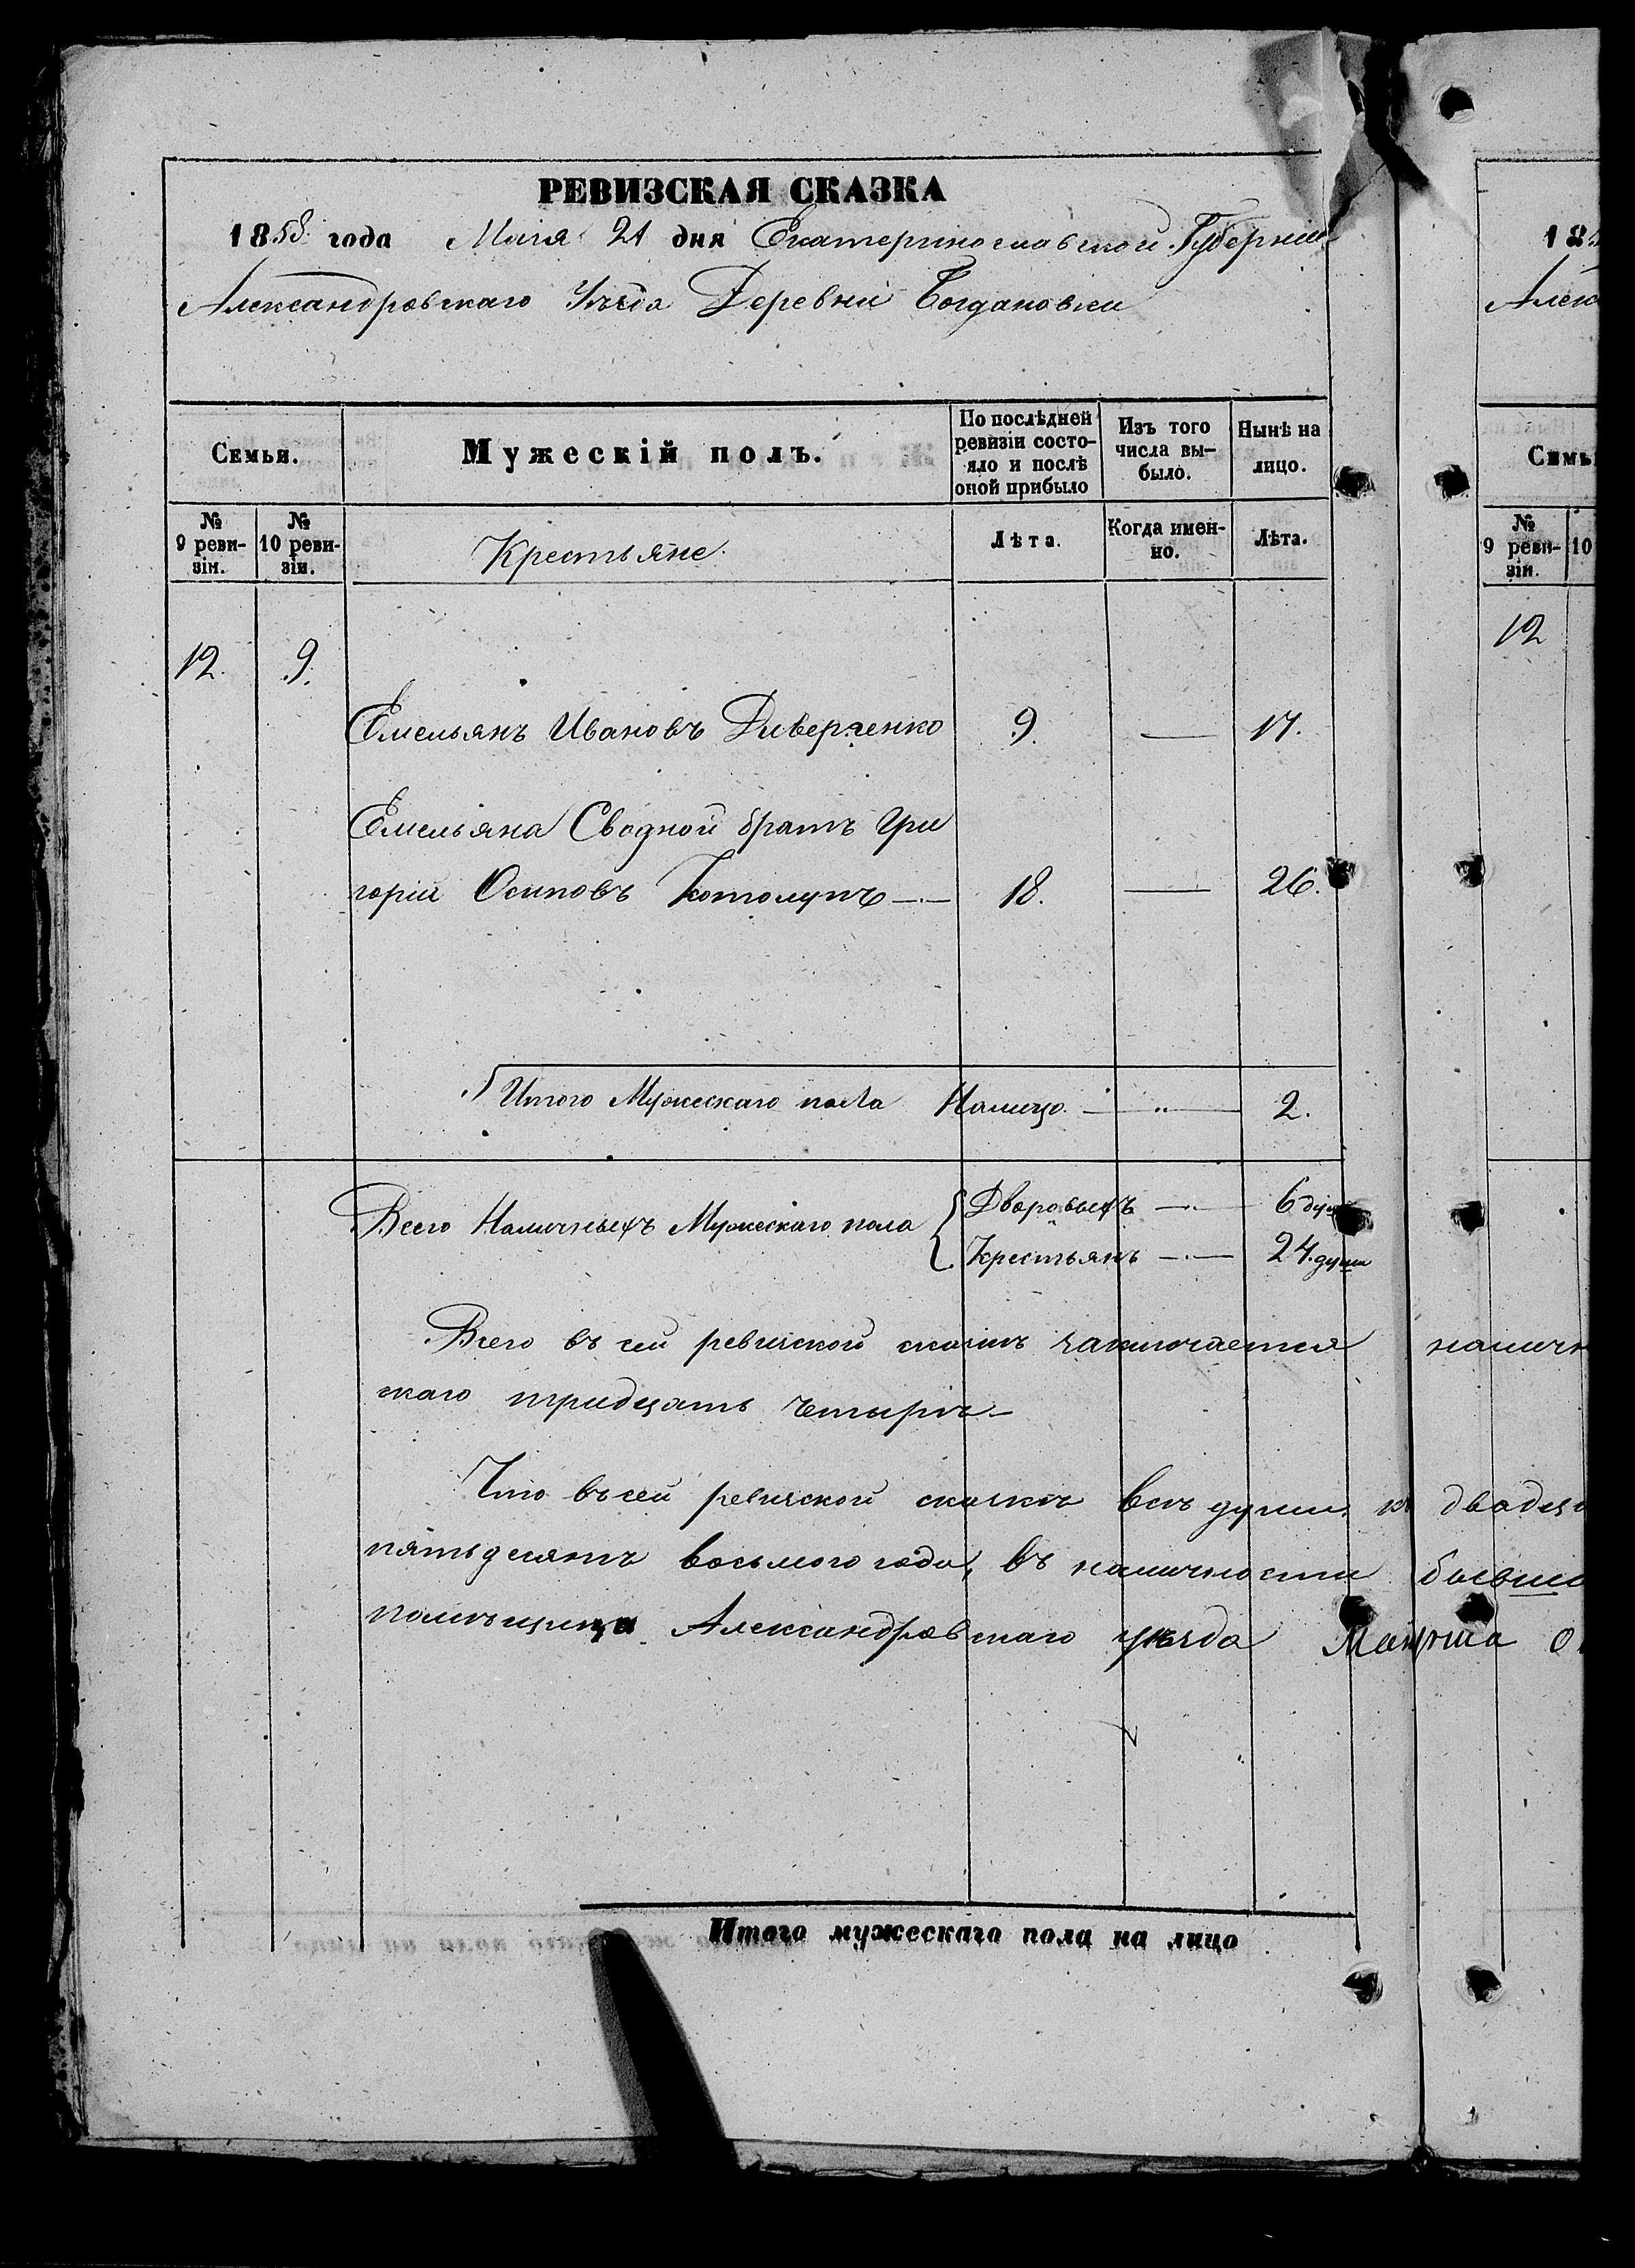 РЕВИЗСКАЯ СКАЗКА
1858 года Маія 21 дня Екатеринославской Губерніи
Александровскаго Уѣзда Деревни Богдановки
Семьи.
Мужескій полъ.
По послѣдней ревизіи состо-
яло и послѣ
оной прибыло
Изъ того
числа вы-
было.
Нынѣ на
лицо.
№
9 реви-
зіи.
№
10 реви-
зіи.
Крестьяне.
Лѣта.
Когда имен-
но.
Лѣта.
12. 9.
Емельянъ Ивановъ 9. — 17.
Емельяна Сводной братъ Гри
горій Осиповъ Котолупъ 18. — 26.
Итого Мужескаго пола Налицо — " — 2.
Всего Наличныхъ Мужескаго пола { Дворовыхъ — 6 душ
Крестьянъ — 24. души
Всего въ сей ревизской сказкѣ заключается наличн
скаго тридцать четыре
Что въ сей ревизской сказкѣ всѣ души къ двадца
пятьдесятъ восьмого года, въ наличности бывш
помѣщица Александровскаго уѣзда
Итого мужескаго пола на лицо
18
Алек
Семь
№
9 реви-
зіи.
10
12